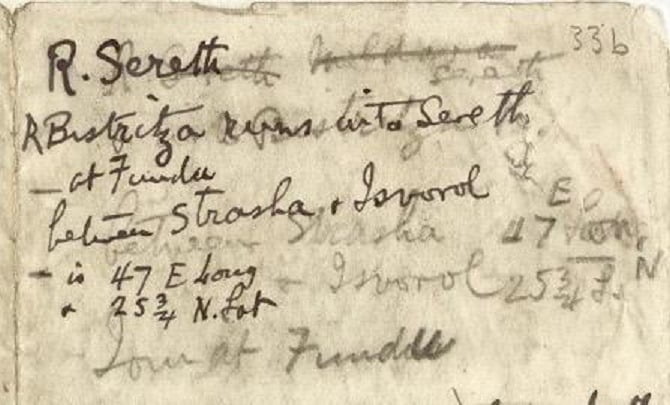 33b
R. Sereth
R Bistritza runs into Sereth
— at Fundu
between Strasha & Isvorol
— is 47 E Long
& 25 3/4 N. Lat
E
47 Lon.
between Strasha
& Isvorol 25 3/4 L. N
Join at Fundu